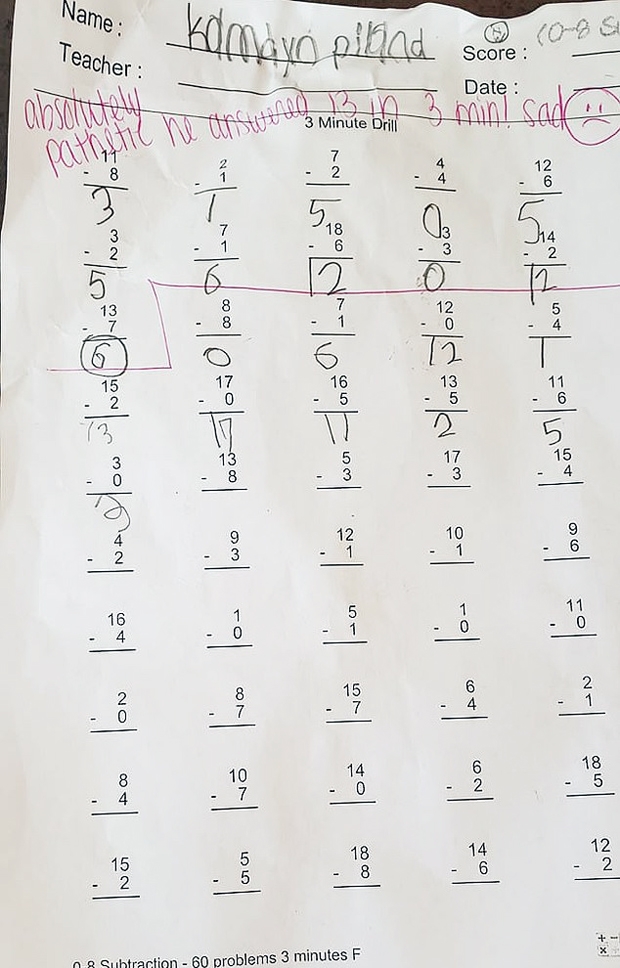 Name: Kamdyn piland
Score: (0-8 Su
Teacher:
Date:
absolutely
pathetic he answered 13 in 3 min! sad
3 Minute Drill
11 2 7 4 12
- 8 - 1 - 2 - 4 - 6
3 1 5 0 5
3 7 18 3 14
- 2 - 1 - 6 - 3 - 2
5 6 12 0 12
13 8 7 12 5
- 7 - 8 - 1 - 0 - 4
6 0 6 12 1
15 17 16 13 11
- 2 - 0 - 5 - 5 - 6
13 17 11 2 5
3 13 5 17 15
- 0 - 8 - 3 - 3 - 4
4 9 12 10 9
- 2 - 3 - 1 - 1 - 6
16 1 5 1 11
- 4 - 0 - 1 - 0 - 0
2 8 15 6 2
- 0 - 7 - 7 - 4 - 1
8 10 14 6 18
- 4 - 7 - 0 - 2 - 5
15 5 18 14 12
- 2 - 5 - 8 - 6 - 2
0 8 Subtraction - 60 problems 3 minutes F